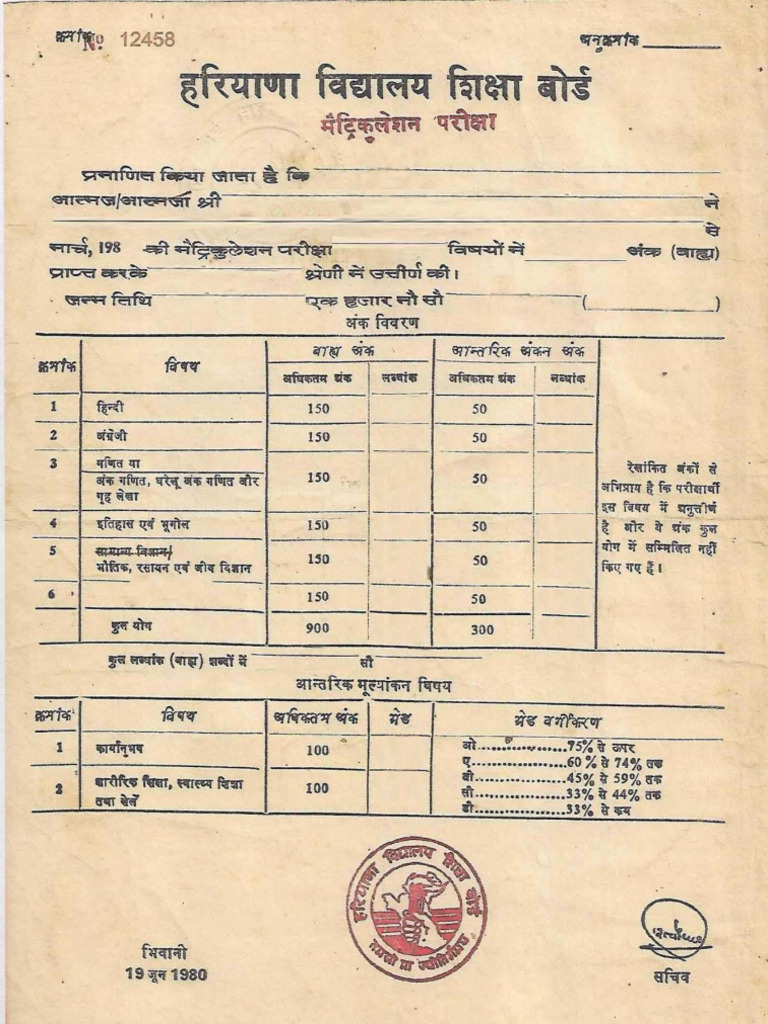 क्रमांक No 12458 अनुक्रमांक
हरियाणा विद्यालय शिक्षा बोर्ड
मैट्रिकुलेशन परीक्षा
प्रमाणित किया जाता है कि
आत्मज/आत्मजा श्री ने
से
मार्च, 198 की मैट्रिकुलेशन परीक्षा विषयों में अंक (बाह्य)
प्राप्त करके श्रेणी में उत्तीर्ण की।
जन्म तिथि एक हजार नौ सौ ( )
अंक विवरण
क्रमांक विषय बाह्य अंक आन्तरिक अंकन अंक
अधिकतम अंक लब्धांक अधिकतम अंक लब्धांक
1 हिन्दी 150 50
2 अंग्रेजी 150 50
3 गणित या
अंक गणित, घरेलू अंक गणित और गृह लेखा 150 50
4 इतिहास एवं भूगोल 150 50
5 सामान्य विज्ञान/
भौतिक, रसायन एवं जीव विज्ञान 150 50
6 150 50
कुल योग 900 300
रेखांकित अंकों से
अभिप्राय है कि परीक्षार्थी
इस विषय में अनुत्तीर्ण
है और ये अंक कुल
योग में सम्मिलित नहीं
किए गए हैं।
कुल लब्धांक (बाह्य) शब्दों में सौ
आन्तरिक मूल्यांकन विषय
क्रमांक विषय अधिकतम अंक ग्रेड ग्रेड वर्गीकरण
1 कार्यानुभव 100
2 शारीरिक शिक्षा, स्वास्थ्य शिक्षा
तथा खेलें 100
ओ..................75% से ऊपर
ए..................60% से 74% तक
बी..................45% से 59% तक
सी..................33% से 44% तक
डी..................33% से कम
हरियाणा विद्यालय शिक्षा बोर्ड
तमसो मा ज्योतिर्गमय
भिवानी
19 जून 1980
सचिव